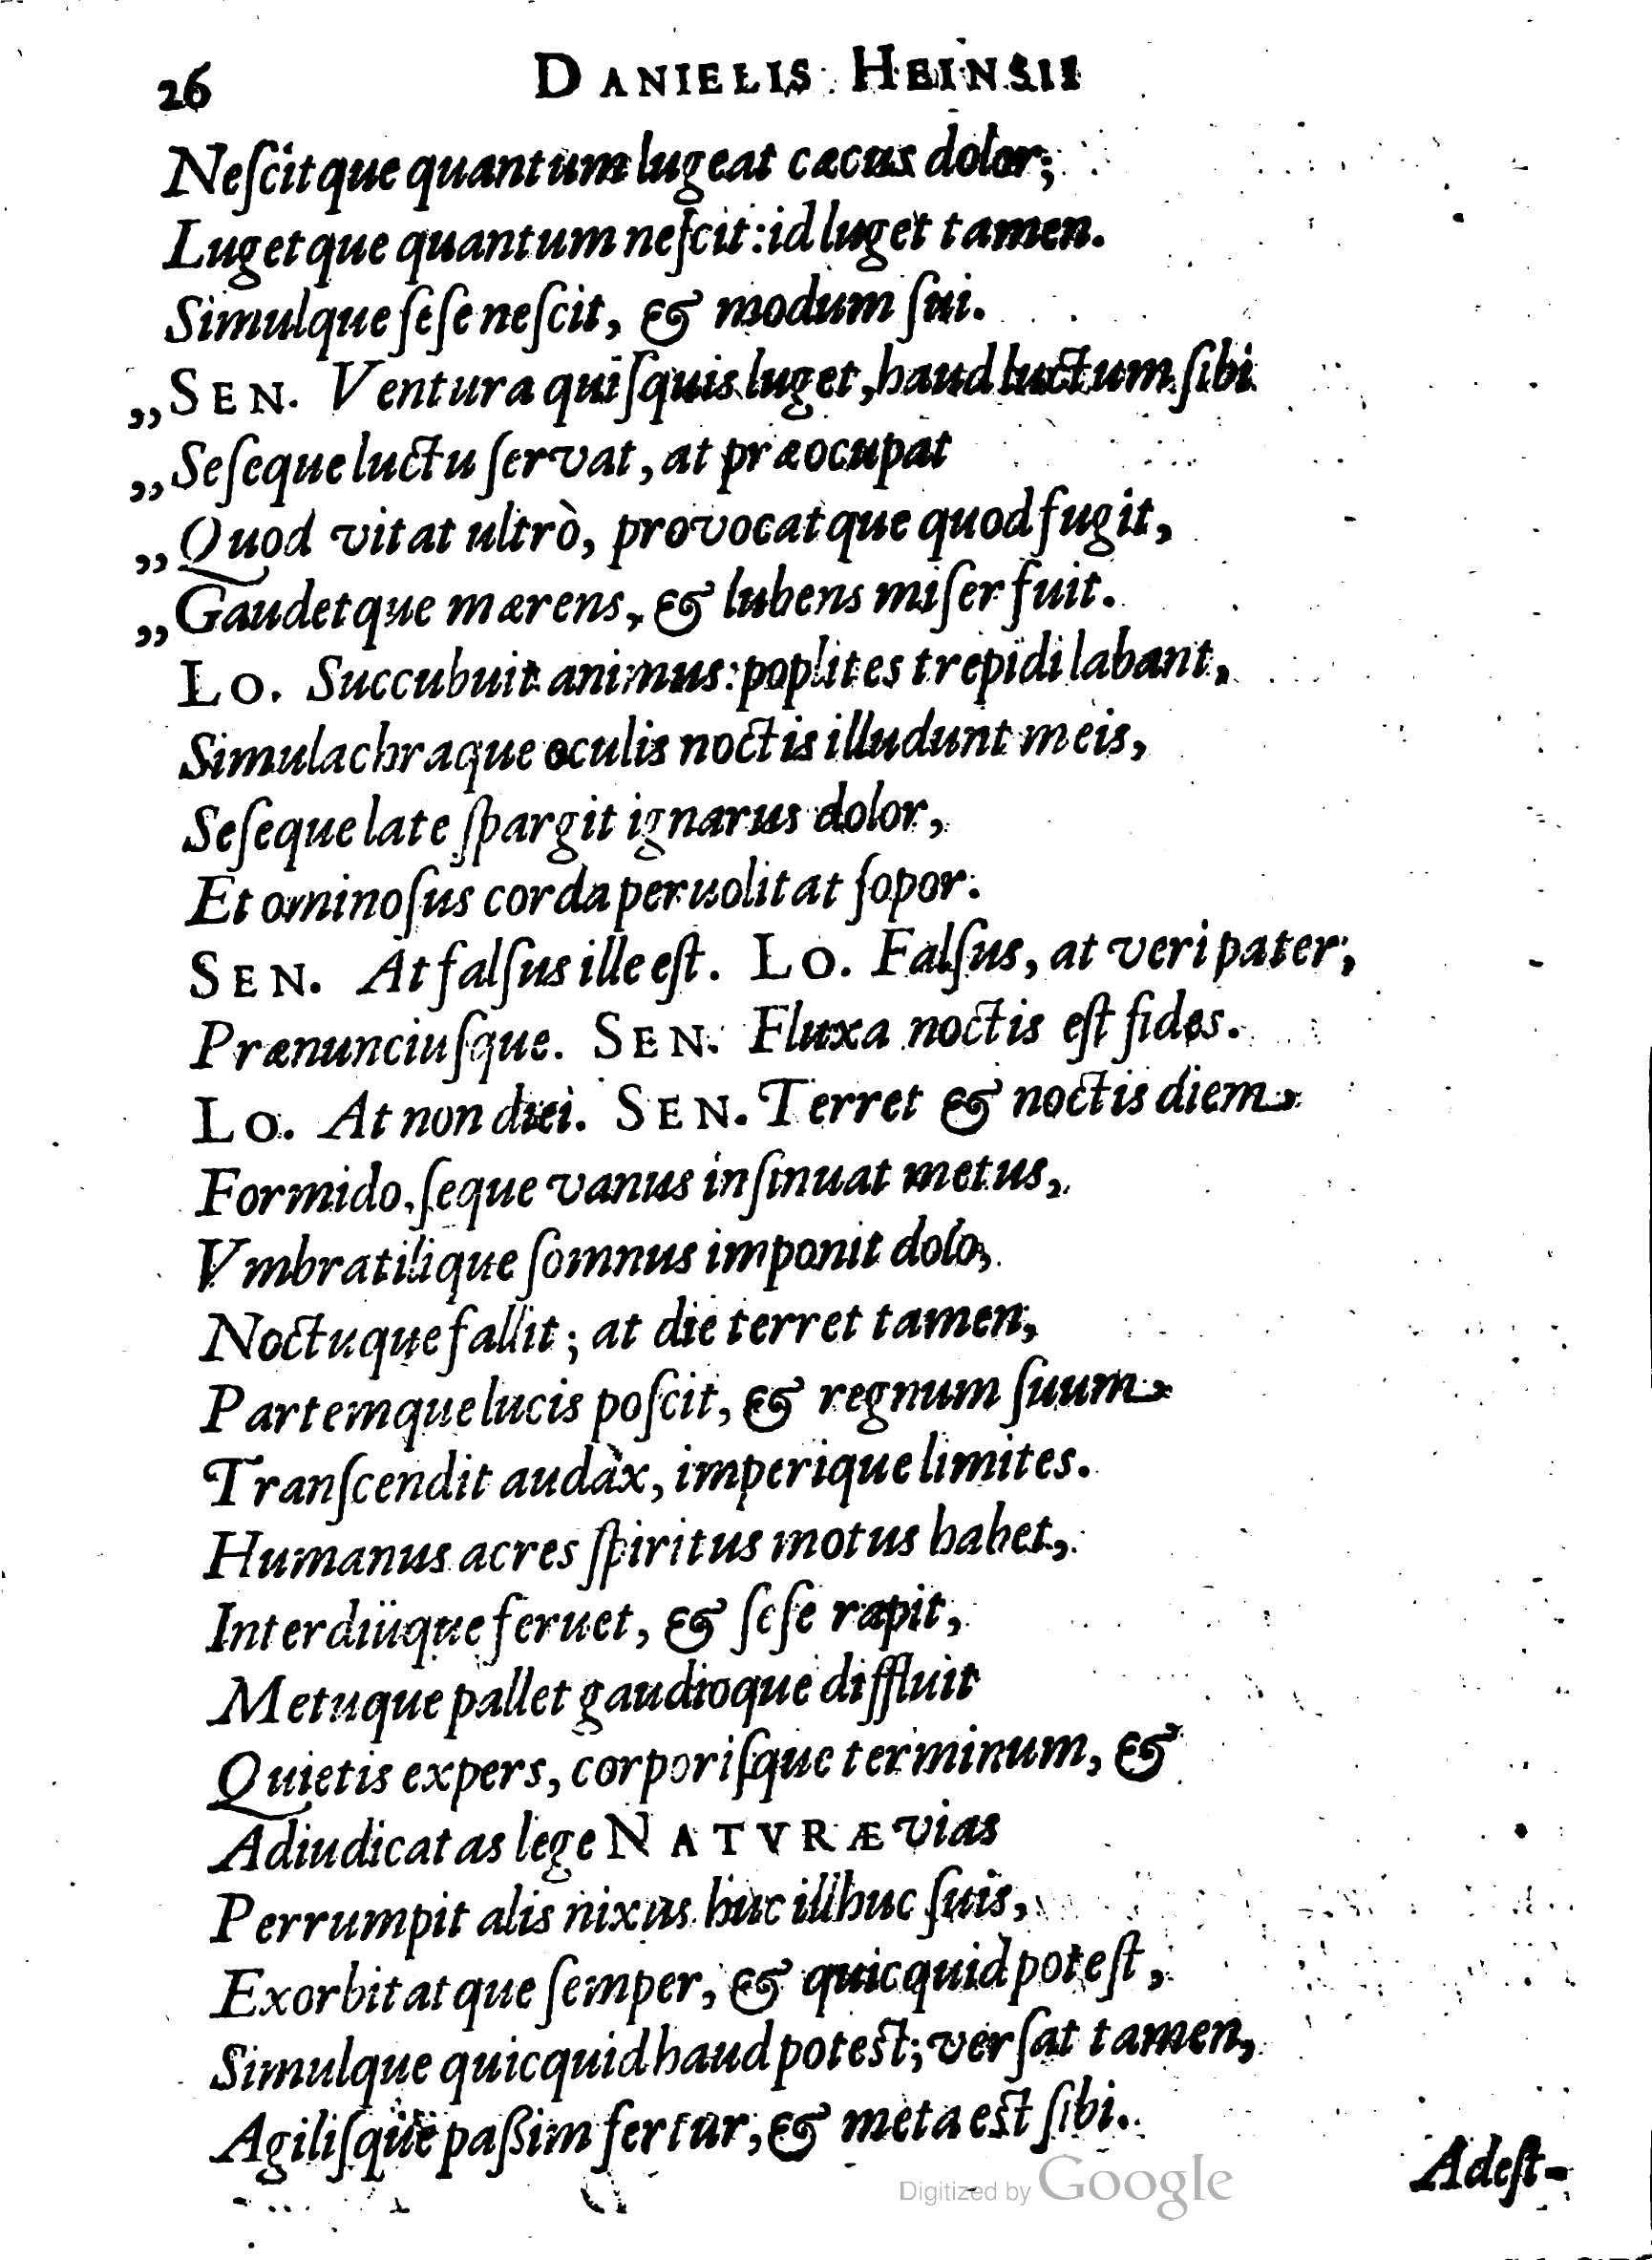 26 DANIELIS HEINSII
Neſcitque quantum lugeat cæcus dolor;
Lugetque quantum neſcit: id luget tamen.
Simulque ſeſe neſcit, & modum ſui.
„SEN. Ventura quiſquis luget, haud luctum ſibi
„Seſeque luctu ſervat, at præocupat
„Quod vitat ultrò, provocatque quod fugit,
„Gaudetque mærens, & lubens miſer fuit.
LO. Succubuit animus: poplites trepidi labant,
Simulachraque oculis noctis illudunt meis,
Seſeque late ſpargit ignarus dolor,
Et ominoſus corda peruolitat ſopor.
SEN. At falſus ille eſt. LO. Falſus, at veri pater;
Prænunciuſque. SEN. Fluxa noctis eſt fides.
LO. At non diei. SEN. Terret & noctis diem
Formido, ſeque vanus inſinuat metus,
Vmbratilique ſomnus imponit dolo,
Noctuque fallit; at die terret tamen,
Partemque lucis poſcit, & regnum ſuum
Tranſcendit audax, imperique limites.
Humanus acres ſpiritus motus habet,
Interdiüque feruet, & ſeſe rapit,
Metuque pallet gaudioque diffluit
Quietis expers, corporiſque terminum, &
Adiudicatas lege NATVRÆ vias
Perrumpit alis nixus huc illhuc ſuis,
Exorbitatque ſemper, & quicquid poteſt,
Simulque quicquid haud potest; verſat tamen,
Agiliſque paßim fertur, & meta est ſibi.
Adeſt-
Digitized by Google